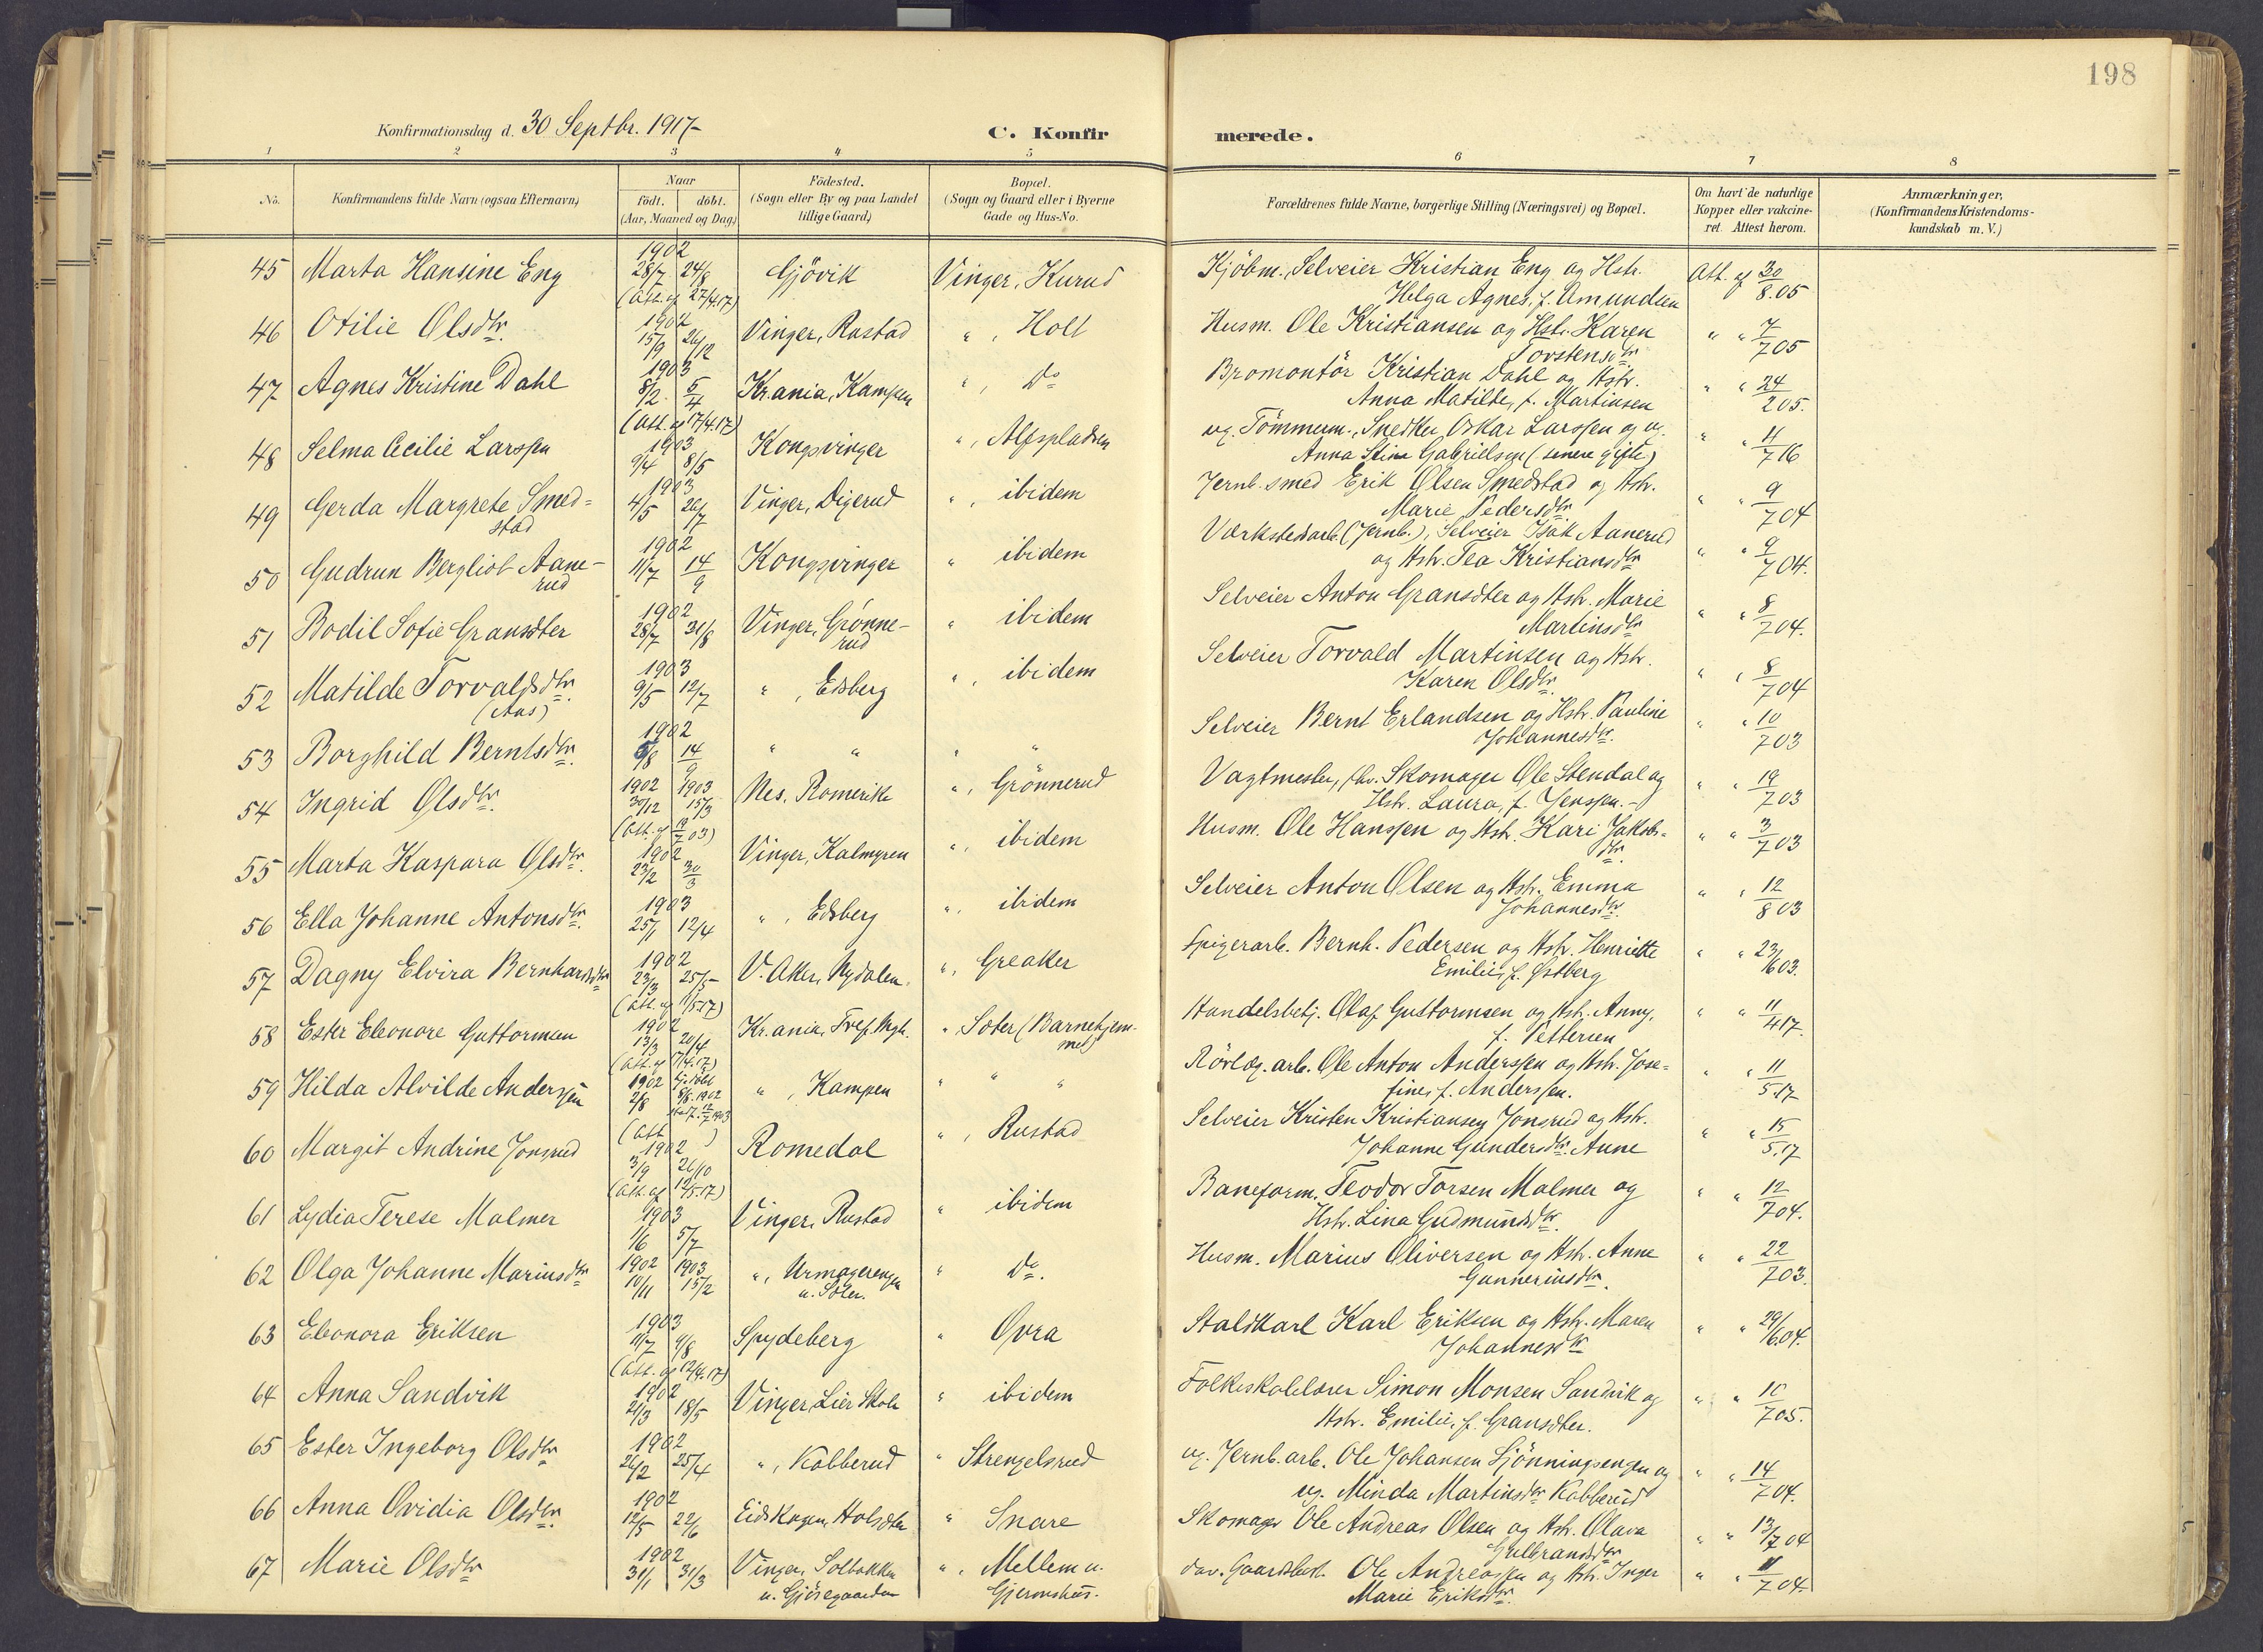 198
Konfirmationsdag d. 30 Septbr. 1917-
C. Konfirmerede.
1 2 3 4 5 6 7 8
No. Konfirmandens fulde Navn (ogsaa Efternavn) Naar födt. döbt. (Aar, Maaned og Dag) Födested. (Sogn eller By og paa Landet tillige Gaard) Bopæl. (Sogn og Gaard eller i Byerne Gade og Hus-No. Forældrenes fulde Navne, borgerlige Stilling (Næringsvei) og Bopæl. Om havt de naturlige Kopper eller vakcineret. Attest herom. Anmærkninger, (Konfirmandens Kristendomskundskab m. V.)
45 Marta Hansine Eng 1902 28/7 24/8 (Att. af 27/4.17) Gjövik Vinger, Kurud Kjöbm., Selveier Kristian Eng og Hstr. Helga Agnes, f. Amundsen Att. af 30/8.05
46 Otilie Olsdtr. 1902 15/9 26/12 Vinger, Rustad ", Holt Husm. Ole Kristiansen og Hstr. Karen Torstensdtr " " 7/7 05
47 Agnes Kristine Dahl 1903 8/2 5/4 (Att. af 17/4.17) Kr.ania, Kampen ", Do Bromontör Kristian Dahl og Hstr. Anna Matilde, f. Martinsen " " 24/2 05.
48 Selma Cecilie Larssen 1903 9/4 8/5 Kongsvinger ", Alfspladsen ug. Tömmerm., Snedker Oskar Larssen og ug. Anna Stina Gabrielsen (senere gifte) " " 11/7 16
49 Gerda Margrete Smed=stad 1903 4/5 26/7 Vinger, Digerud ", ibidem Jernb.smed Erik Olsen Smedstad og Hstr. Marie Pedersdtr " " 9/7 04
50 Gudrun Bergliot Aane-rud 1902 11/7 14/9 Kongsvinger " ibidem Værkstedsarb. (Jernb.), Selveier Isak Aanerud og Hstr. Tea Kristiansdtr " " 9/7 04.
51 Bodil Sofie Gransdter 1902 28/7 31/8 Vinger, Grönne-rud " ibidem Selveier Anton Gransdter og Hstr. Marie Martinsdtr " " 8/7 04.
52 Matilde Torvaldsdtr. (Aas) 1903 9/5 12/7 ", Edsberg ", ibidem Selveier Torvald Martinsen og Hstr. Karen Olsdtr. " " 8/7 04
53 Borghild Berntsdtr. 1902 5/8 14/9 " " " " Selveier Bernt Erlandsen og Hstr. Pauline Johannesdtr. " " 10/7 03
54 Ingrid Olsdtr. 1902 30/12 1903 15/3 (Att. af 19/7 03) Nes, Romerike ", Grönnerud Vagtmester, fhv. Skomager Ole Stendal og Hstr. Laura, f. Jenssen.- " " 19/7 03
55 Marta Kaspara Olsdtr. 1902 23/2 30/3 Vinger, Kalmyren ", ibidem Husm. Ole Hanssen og Hstr. Kari Jakobs=dtr. " " 3/7 03
56 Ella Johanne Antonsdtr. 1903 25/1 12/4 ", Edsberg ", ibidem Selveier Anton Olsen og Hstr. Emma Johannesdtr. " " 12/8 03
57 Dagny Elvira Bernhardsdtr 1902 23/3 25/5 (Att. af 11/5.17) V. Aker, Nydalen. ", Greaker Spigerarb. Bernh. Pedersen og Hstr. Henriette Emilie, f. Östberg " " 23/6 03.
58 Ester Eleonore Guttormsen 1902 13/3 20/4 (Att. af 17/4.17) Kr.ania, Tref. Mgh. " Soter (Barnehjemmet) Handelsbetj. Olaf Guttormsen og Hstr. Anny, f. Pettersen " " 11/4 17.
59 Hilda Alvilde Anderssen 1902 2/8 hj.döbt 8/8.1902 stadf. 12/7 1903 (Att ) ", Kampen " " " Rörlæg.arb. Ole Anton Anderssen og Hstr. Jose=fine, f. Anderssen. " " 11/5.17
60 Margit Andrine Jonsrud 1902 3/9 26/10 (Att. af 12/5.17) Romedal ", Rustad Selveier Kristen Kristiansen Jonsrud og Hstr. Johanne Gundersdtr. Aune " " 15/5.17
61 Lydia Terese Malmer 1903 1/6 5/7 Vinger, Rustad " ibidem Baneform. Teodor Torsen Malmer og Hstr. Lina Gudmundsdtr. " " 12/7 04.
62 Olga Johanne Mariusdtr 1902 10/11 1903 15/2 ", Urmagerengen u. Soler. " Do. Husm. Marius Oliversen og Hstr. Anne Gunneriusdtr. " " 22/7 03.
63 Eleonora Eriksen 1903 11/7 9/8 (Att. af 12/4.17) Spydeberg " Övra Staldkarl Karl Eriksen og Hstr. Maren Johannesdtr " " 29/6.04.
64 Anna Sandvik 1902 21/3 18/5 Vinger, Lier Skole " ibidem Folkeskolelærer Simon Monsen Sandvik og Hstr. Emilie, f. Gransdter. " " 10/7 05.
65 Ester Ingeborg Olsdtr 1902 26/2 25/4 ", Kobberud " Strengelsrud ug. Jernb.arb. Ole Johansen Sjönningsengen og ug. Minda Martinsdtr Kobberud " " 14/7 04.
66 Anna Ovidia Olsdtr. 1902 12/5 22/6 Eidskogen, Holsdter " Snare Skomager Ole Andreas Olsen og Hstr. Olava Gulbrandsdtr " " 13/7 04
67 Marie Olsdtr 1902 31/1 31/3 Vinger, Solbakken u. Gjösegaarden ", Mellem u. Gjermshus. dav. Gaardsbest. Ole Andreassen og Hstr. Inger Marie Eriksdtr. " " 11/7 04